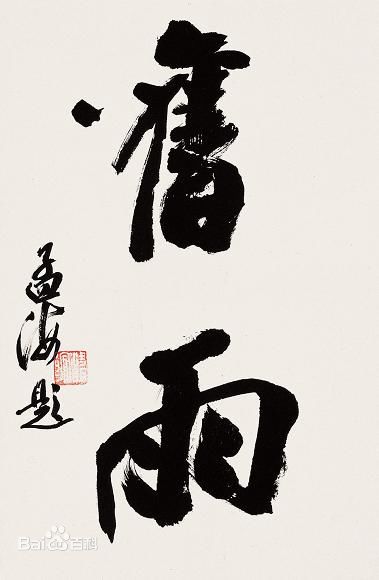 舊雨
孟海題
Bai百科